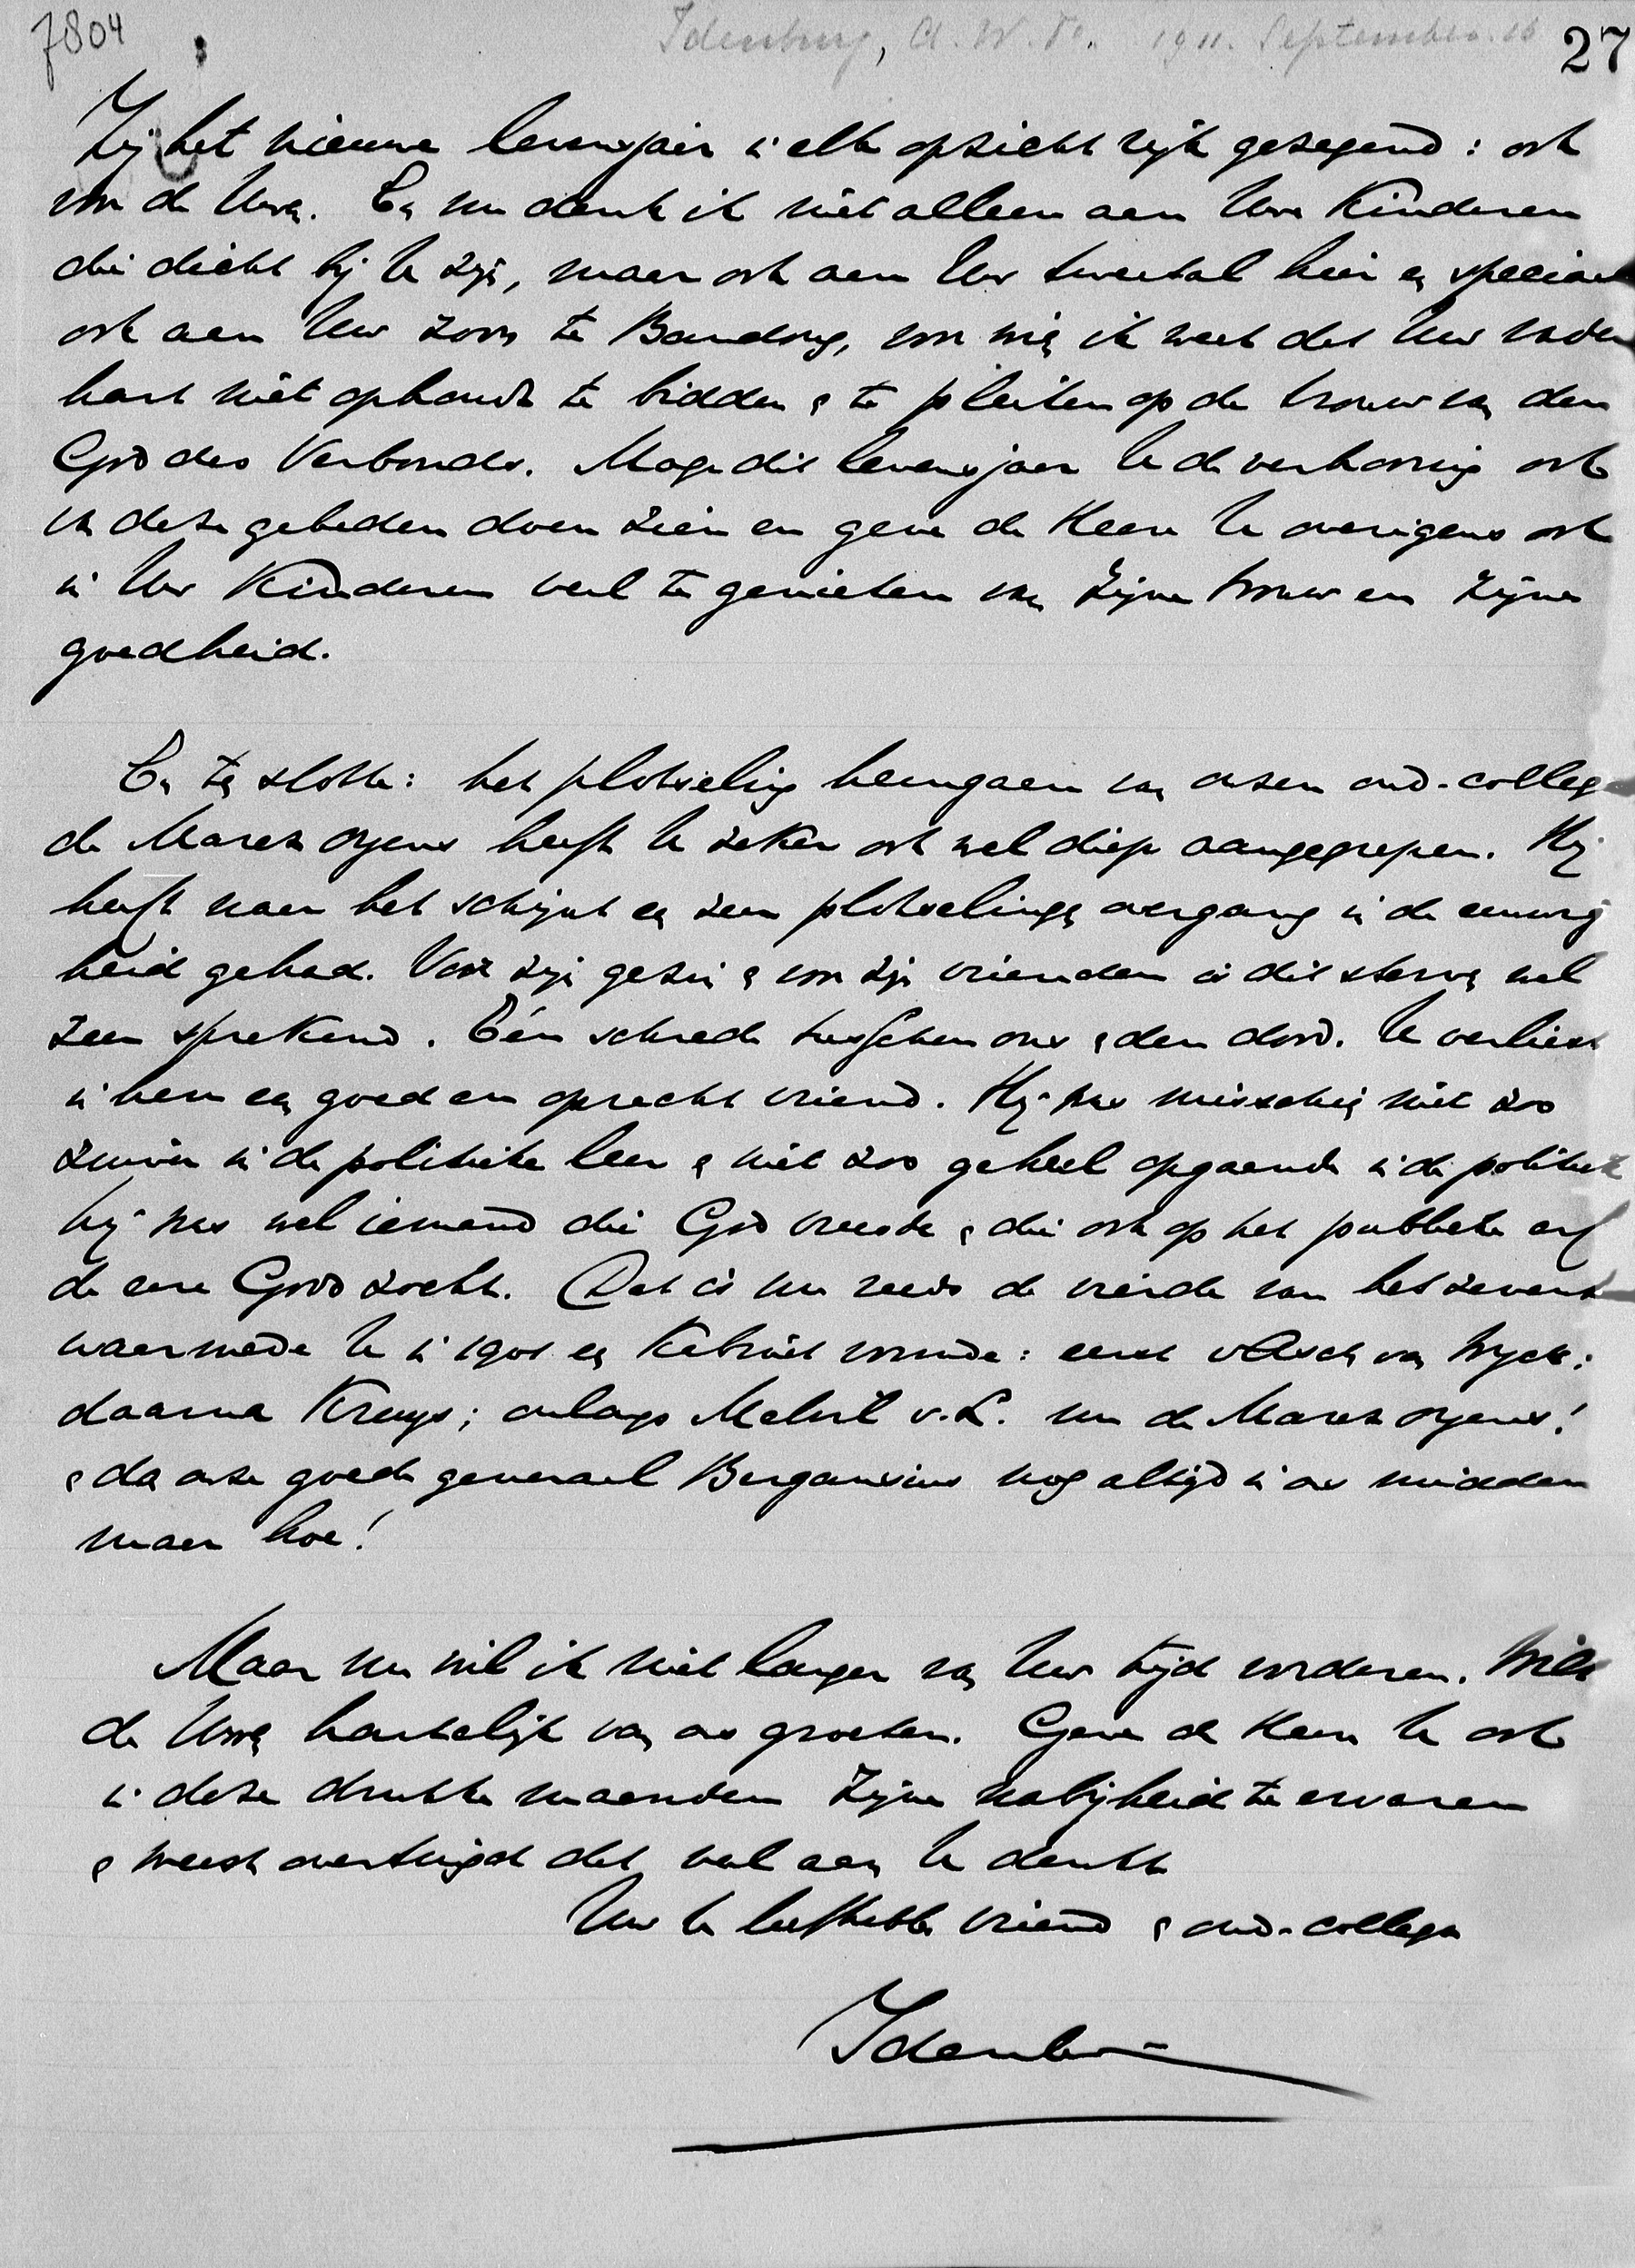 7804
Idenburg, A.W.F. 1911. September. 16
27
Zij het nieuwe levensjaar in elk opzicht rijk gezegend: ook
voor de Uwen. En nu denk ik niet alleen aan Uwe Kinderen
die dicht bij U zijn, maar ook aan Uw tweetal hier en speciaal
ook aan Uw zoon te Bandong, voor wien ik weet dat Uw vader
hart niet ophoudt te bidden en te pleiten op de trouw van den
God des Verbonds. Moge dit levensjaar U de verhooring ook
van deze gebeden doen zien en geve de Heere U overigens ook
in Uw Kinderen veel te genieten van Zijne trouw en Zijne
goedheid.
En ten slotte: het plotseling heengaan van onzen oud-colleg
de Marez Oyens heeft U zeker ook wel diep aangegrepen. Hij
heeft naar het schijnt een zeer plotselingen overgang in de eeuwig
heid gehad. Voor zijn gezin en voor zijn vrienden is dit sterven wel
zeer sprekend. Eén schrede tusschen ons en den dood. U verliest
in hem een goed en oprecht vriend. Hij was misschien niet zoo
zuiver in de politieke leer en niet zoo geheel opgaande in de politiek
hij was wel iemand die God vreesde en die ook op het publieke erf
de eere Gods zocht. Dat is nu reeds de vierde van het zevental
waarmede U in 1901 een Kabinet vormde: eerst v Asch van Wyck;
daarna Kruys; onlangs Melvil v.L. nu de Marez Oyens!
en da onze goede generaal Bergansius nog altijd in ons midden
maar hoe!
Maar nu wil ik niet langer van Uw tijd vorderen. Wilt
de Uwen hartelijk van ons groeten. Geve de Heere U ook
in deze drukke maanden Zijne nabijheid te ervaren
en weest overtuigd dat veel aan U denkt
Uw U liefhebb. vriend en oud-collega
Idenburg